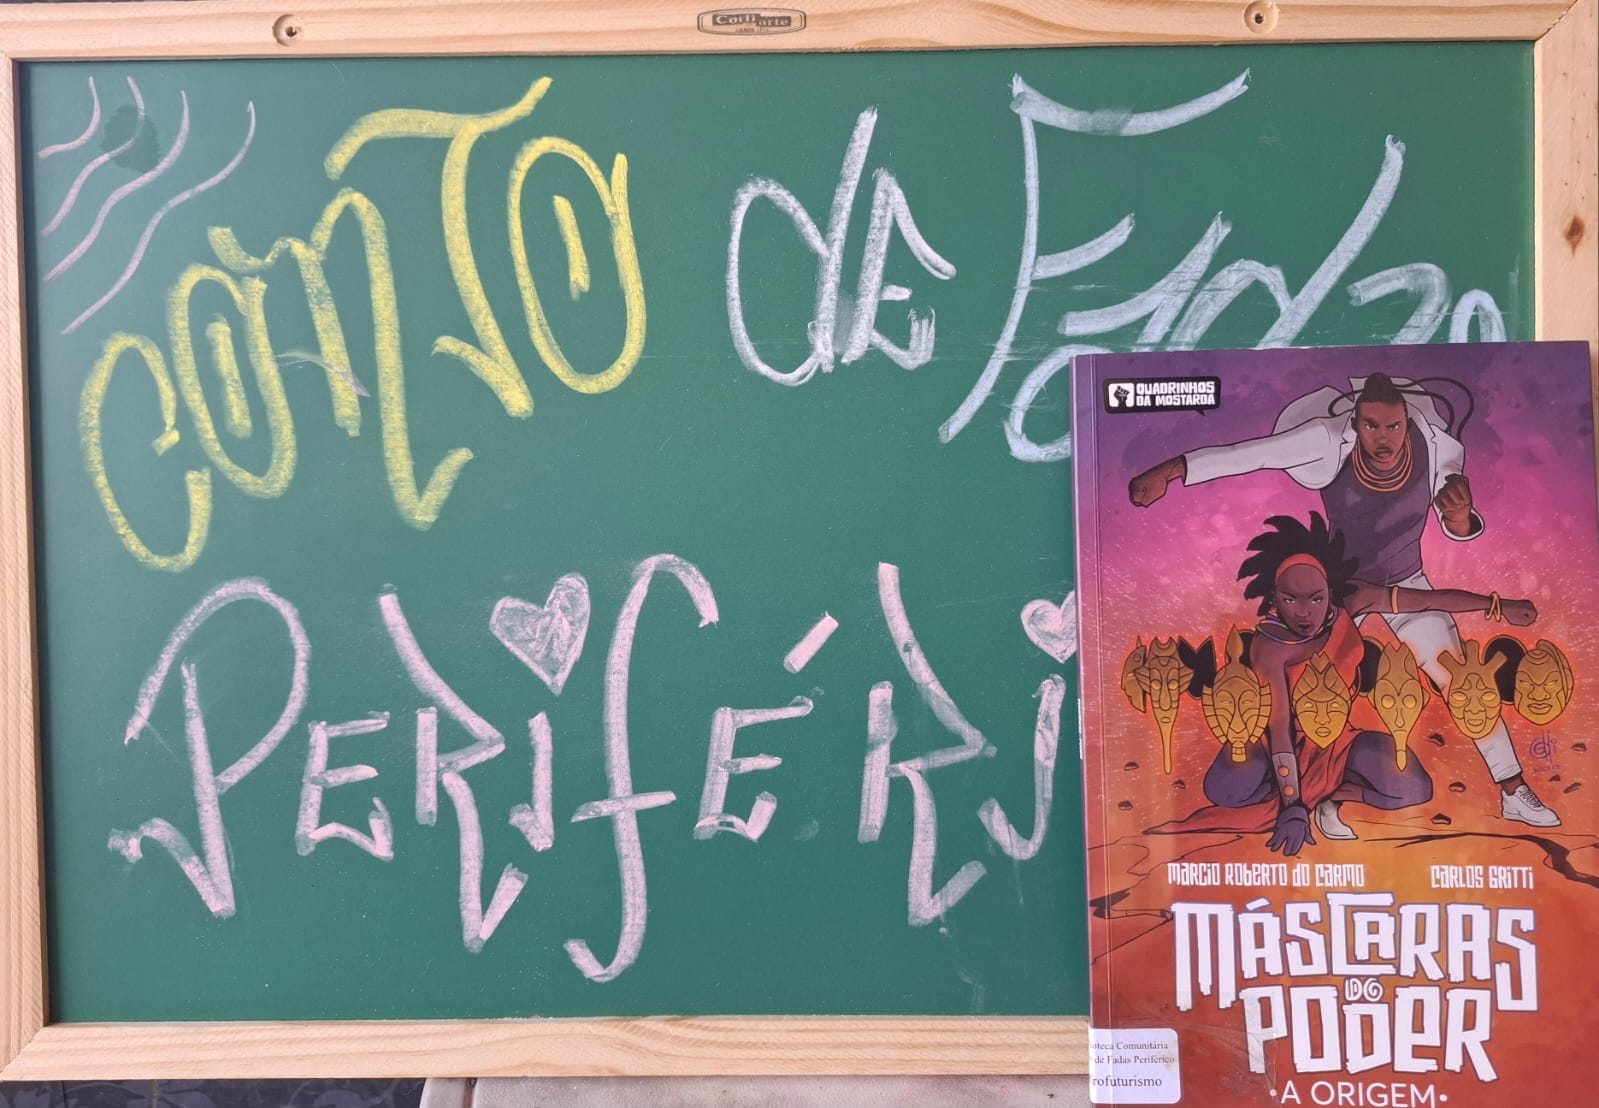 Cortiarte
CONTO de Fadas
PERIFÉRI
QUADRINHOS
DA MOSTARDA
MARCIO ROBERTO DO CARMO CARLOS GRITTI
MÁSCARAS
DO
PODER
•A ORIGEM•
oteca Comunitária
de Fadas Periférico
rofuturismo